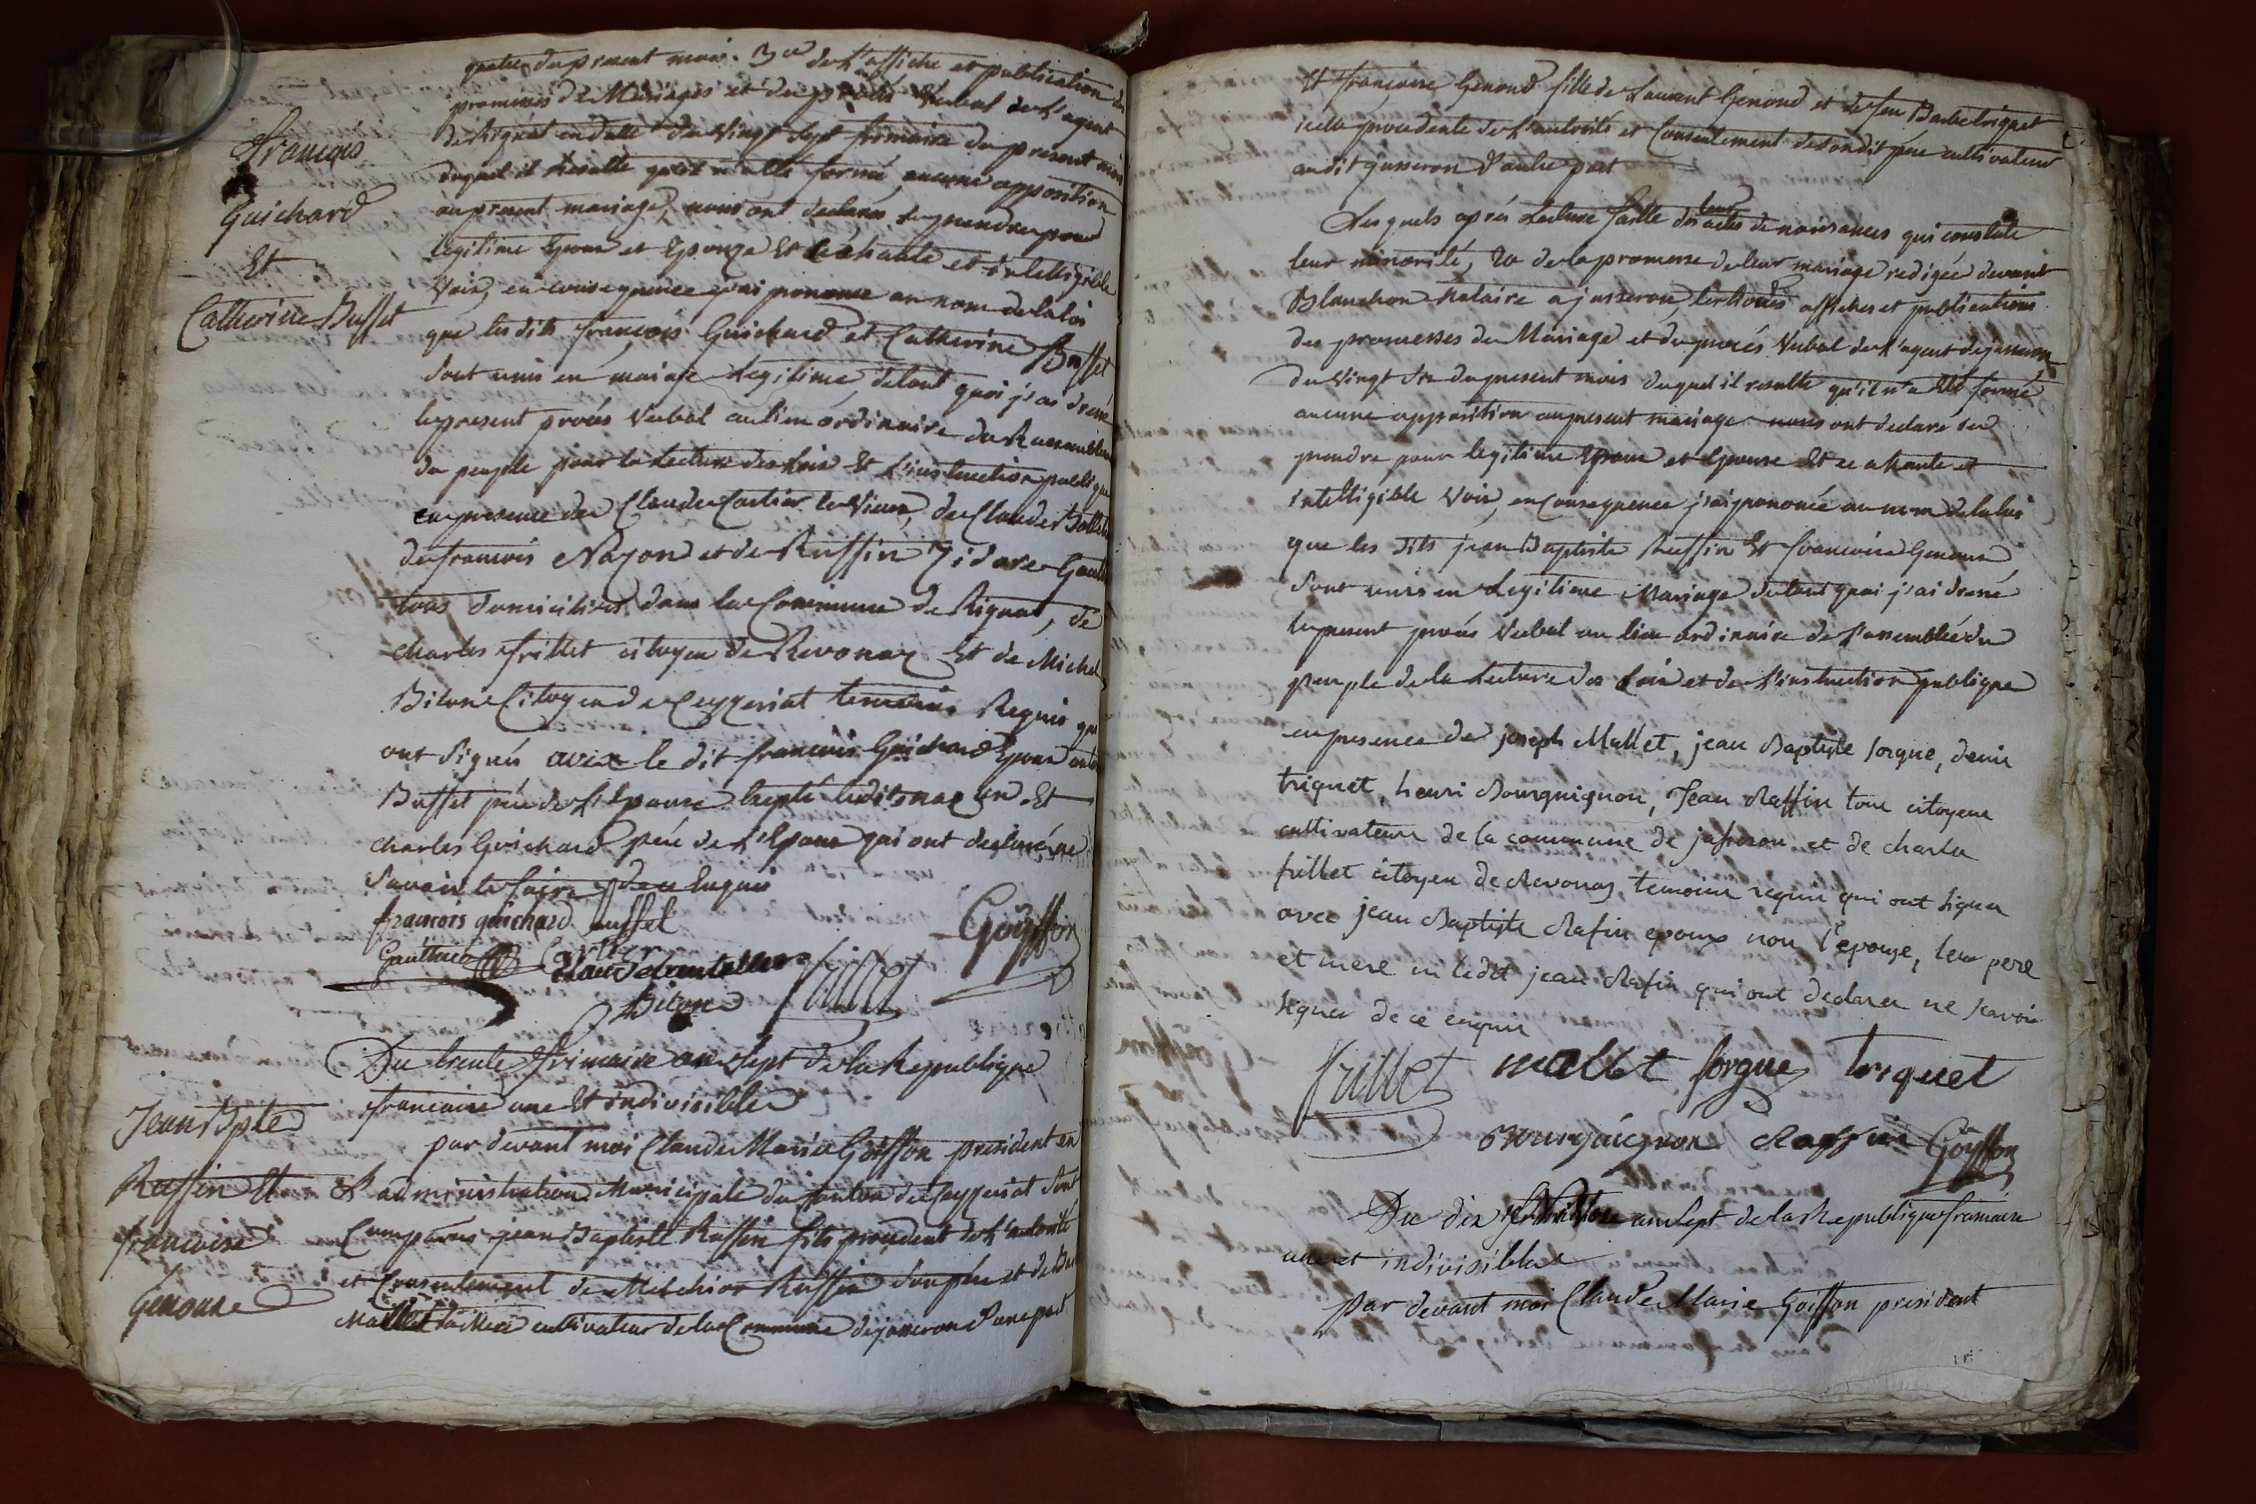 quatre du present mois. 3° de l'affiche et publication des
promesses de Mariages et du procès Verbal de l'agent
de Rignat en datte du vingt sept frimaire du present mois
duquel il Resulte qu'il n'a été formé aucune opposition
au present mariage, nous ont declarés se prendre pour
legitime Epoux et Epouze Et ce a haute et intelligible
Voix, en consequence j'ai prononcé au nom de la loi
que lesdits françois Guichard et Catherine Buffet
sont unis en mariage legitime, de tout quoi j'ai dressé
le present procès Verbal au lieu ordinaire du Rassemblement
du peuple pour la Lecture des Lois Et l'instruction publique
en presence de Claude Cartier le Vieux, de Claude
de francois Nayond et de Ruffin
tous domiciliés dans la Commune de Rignat, de
charles frillet citoyen de Revonaz Et de Michel
Bilone Citoyen de Ceyzeriat temoins Requis qui
ont signés avec le dit francois Guichard Epoux
Buffet père de l'Epouse Et
charles Guichard père de l'Epoux qui ont declaré ne
savoir le faire de ce Enquis
francois guichard buffet
Gauthier Cartier
Goiffon
frillet
Bilone
francois
Guichard
Et
Catherine Buffet
Du trente frimaire an sept de la Republique
francaise une Et indivisible
par devant moi Claude Marie Goiffon president en
L'administration Municipale du Canton de Ceyzeriat sont
Comparus jean Baptiste Ruffin fils procedent de l'autorité
et Consentement de Melchior Ruffin son père et de
Mallet sa Mere cultivateur de la Commune de jasseron d'une part
Jean Bpte
Ruffin Et
francoise
Genoune
Et francoise Genoud fille de Laurent Genoud et de feu Barbe triquet
icelle procedente de l'autorité et Consentement de sondit père cultivateur
audit jasseron d'autre part
Lesquels après Lecture faitte des leur actes de naissances qui constate
leur minorité, 2° de la promesse de leur mariage redigée devant
Blanchon Notaire a jasseron, affiches et publications
des promesses de Mariage et du procès Verbal de l'agent de jasseron
du Vingt six du present mois duquel il resulte qu'il n'a été formé
aucune opposition au present mariage nous ont declaré se
prendre pour legitime Epoux et Epouse Et ce a haute et
intelligible Voix, en Consequence j'ai prononcé au nom de la loi
que les dits jean Baptiste Ruffin Et francoise Genoune
sont unis en Legitime Mariage de tout quoi j'ai dressé
le present procès Verbal au lieu ordinaire de l'assemblée du
peuple de la Lecture des Lois et de l'instruction publique
en presence de joseph Mallet, jean Baptiste sorgue, denis
triquet, henri Bourguignon, Jean Raffin tous citoyens
cultivateurs de la commune de jasseron et de charles
frillet citoyen de Revonas temoins requis qui ont signer
avec jean Baptiste Rafin epoux non l'epouze, leur pere
et mere ni ledit jean Rafin qui ont declarer ne scavoir
signer de ce enquis
frillet mallet sorgue triquet
Bourguignon Raffin Goiffon
Du dix an sept de la Republique francaise
une et indivisible
Par devant moi Claude Marie Goiffon president